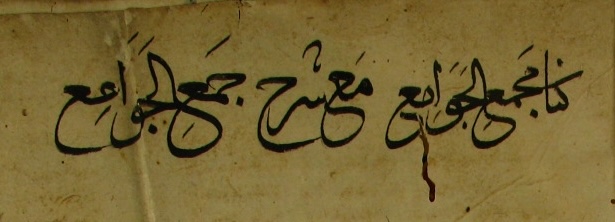 كتاب مجمع الجوامع مع شرح جمع الجوامع